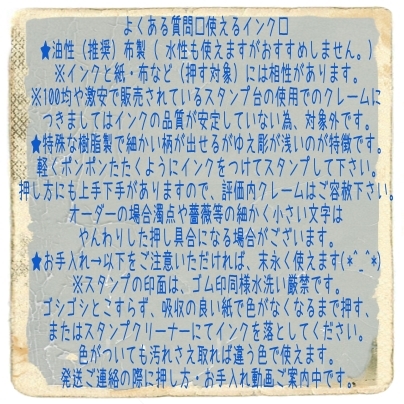 よくある質問□使えるインク□
★油性（推奨）布製（ 水性も使えますがおすすめしません。）
※インクと紙・布など（押す対象）には相性があります。
※100均や激安で販売されているスタンプ台の使用でのクレームに
つきましてはインクの品質が安定していない為、対象外です。
★特殊な樹脂製で細かい柄が出せるがゆえ彫が浅いのが特徴です。
軽くポンポンたたくようにインクをつけてスタンプして下さい。
押し方にも上手下手がありますので、評価内クレームはご容赦下さい。
オーダーの場合濁点や薔薇等の細かく小さい文字は
やんわりした押し具合になる場合がございます。
★お手入れ→以下をご注意いただければ、末永く使えます(*^_^*)
※スタンプの印面は、ゴム印同様水洗い厳禁です。
ゴシゴシとこすらず、吸収の良い紙で色がなくなるまで押す、
またはスタンプクリーナーにてインクを落としてください。
色がついても汚れさえ取れば違う色で使えます。
発送ご連絡の際に押し方・お手入れ動画ご案内中です。